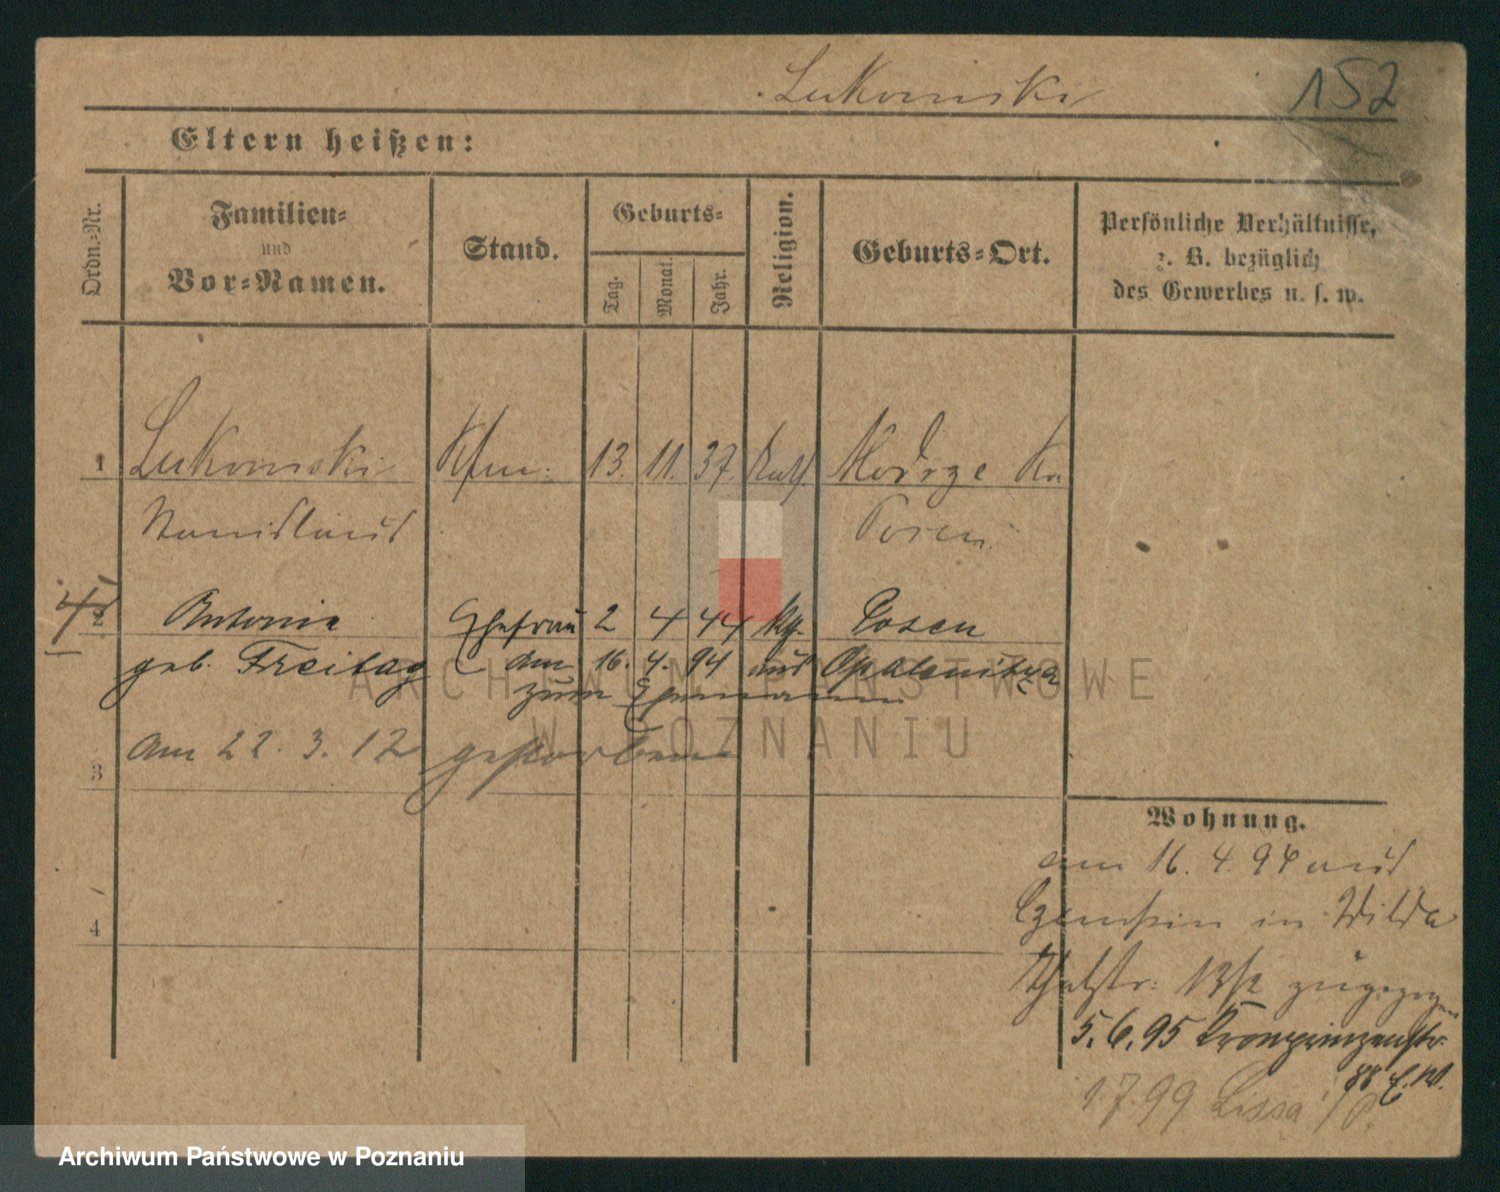 Lukomski
152
Eltern heißen:
Ordn.=Nr.
Familien=
und
Vor=Namen.
Stand.
Geburts=
Tag.
Monat.
Jahr.
Religion.
Geburts=Ort.
Persönliche Verhältnisse,
z. B. bezüglich
des Gewerbes u. s. w.
1 Lukomski Kfm. 13. 11. 37. kath. Modrze Kr.
Stanislaus Posen
2 Antonie Ehefrau 2 4 44 kth. Posen
geb. Freitag am 16. 4. 94 aus Opalenitza
zum Ehemann
3 am 22. 3. 12 gestorben
4
Wohnung.
am 16. 4. 94 aus
in Wilda
Thalstr. zugezogen
5. 6. 95 Kronprinzenstr.
88 E. W.
1. 7. 99 Lissa i/P.
ARCHIWUM PAŃSTWOWE
W POZNANIU
Archiwum Państwowe w Poznaniu